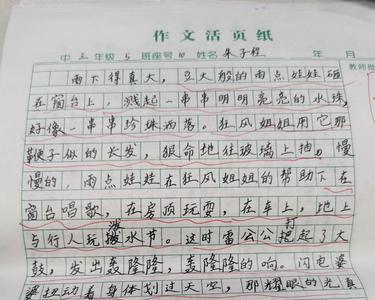 作文活页纸
中三年级5班座号10姓名朱子程 年 月
教师批
雨下得真大,豆大般的雨点娃娃砸
在窗台上,溅起一串串明明亮亮的水珠,
好像一串串珍珠洒落。狂风姐姐用它那
鞭子似的长发,狠命地往玻璃上抽。慢
慢的,雨点娃娃在狂风姐姐的帮助下在
窗台唱歌,在房顶玩耍,在车上,地上
泼 打
与行人玩拨水节。这时雷公公把起了大
鼓,发出轰隆隆,轰隆隆的响。闪电婆
婆扭动着身体划过天空,那耀眼的光真